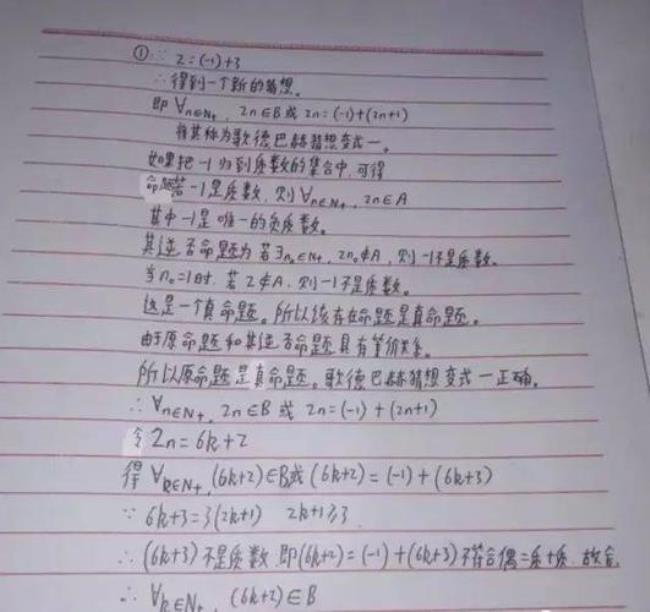 ① ∵ 2=(-1)+3
∴ 得到一个新的猜想。
即 ∀n∈N+, 2n∈B 或 2n=(-1)+(2n+1)
将其称为歌德巴赫猜想变式一。
如果把-1归到质数的集合中,可得
命题若-1是质数,则∀n∈N+, 2n∈A
其中-1是唯一的负质数。
其逆否命题为若∃n₀∈N+, 2n₀∉A, 则-1不是质数。
当n₀=1时,若2∉A,则-1不是质数。
这是一个真命题。所以该存在命题是真命题。
由于原命题和其逆否命题具有等价关系。
所以原命题是真命题。歌德巴赫猜想变式一正确。
∴ ∀n∈N+, 2n∈B 或 2n=(-1)+(2n+1)
令 2n=6k+2
得 ∀k∈N+, (6k+2)∈B或(6k+2)=(-1)+(6k+3)
∵ 6k+3=3(2k+1) 2k+1≥3
∴ (6k+3)不是质数,即(6k+2)=(-1)+(6k+3)不符合偶=质+质,故舍。
∴ ∀k∈N+, (6k+2)∈B